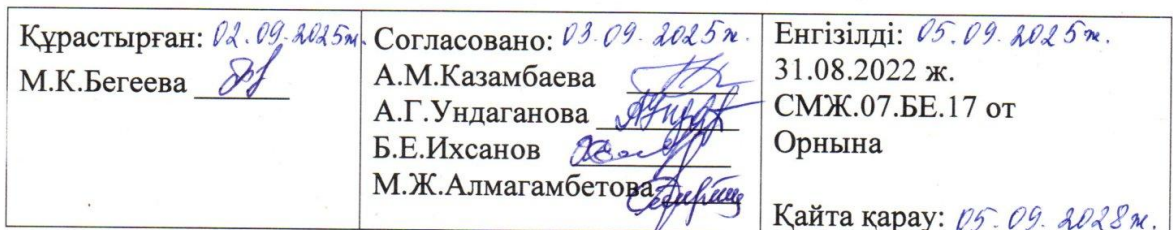 Құрастырған: 02.09.2025ж.
М.К.Бегеева
Согласовано: 03.09.2025ж.
А.М.Казамбаева
А.Г.Ундаганова
Б.Е.Ихсанов
М.Ж.Алмагамбетова
Енгізілді: 05.09.2025ж.
31.08.2022 ж.
СМЖ.07.БЕ.17 от
Орнына
Қайта қарау: 05.09.2028ж.